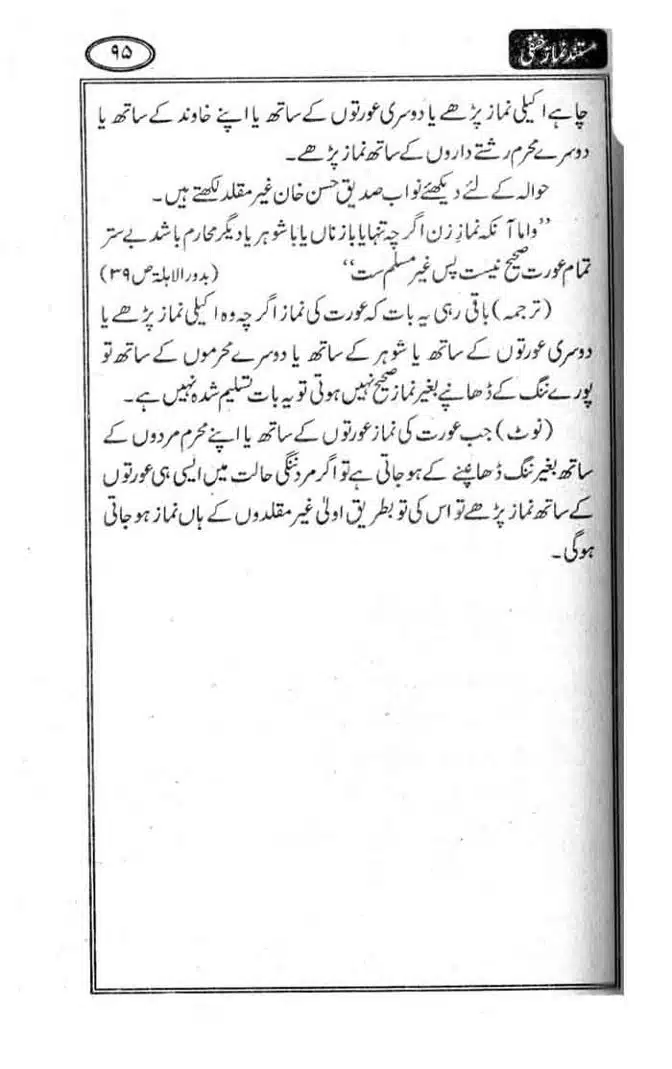 مستند نماز حنفی
۹۵
چاہے اکیلی نماز پڑھے یا دوسری عورتوں کے ساتھ یا اپنے خاوند کے ساتھ یا
دوسرے محرم رشتے داروں کے ساتھ نماز پڑھے۔
حوالہ کے لئے دیکھئے نواب صدیق حسن خان غیر مقلد لکھتے ہیں۔
”واما آنکہ نماز زن اگرچہ تنہا یا بازناں یا با شوہر یا دیگر محارم باشد بے ستر
تمام عورت صحیح نیست پس غیر مسلم ست“ (بدور الاہلۃ ص۳۹)
(ترجمہ) باقی رہی یہ بات کہ عورت کی نماز اگرچہ وہ اکیلی نماز پڑھے یا
دوسری عورتوں کے ساتھ یا شوہر کے ساتھ یا دوسرے محرموں کے ساتھ تو
پورے ننگ کے ڈھانپے بغیر نماز صحیح نہیں ہوتی تو یہ بات تسلیم شدہ نہیں ہے۔
(نوٹ) جب عورت کی نماز عورتوں کے ساتھ یا اپنے محرم مردوں کے
ساتھ بغیر ننگ ڈھاپنے کے ہو جاتی ہے تو اگر مرد ننگی حالت میں ایسی ہی عورتوں
کے ساتھ نماز پڑھے تو اس کی تو بطریق اولیٰ غیر مقلدوں کے ہاں نماز ہو جاتی
ہوگی۔